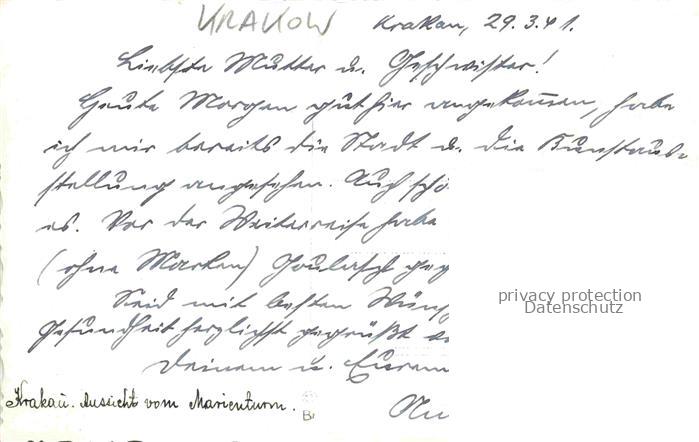 KRAKOW
Krakau, 29.3.41.
Liebste Mutter u. Geschwister!
Heute Morgen gut hier angekom̄en, habe
ich mir bereits die Stadt u. die Kunstaus-
stellung angesehen. Auch schö
es. Vor der Weiterreise habe
(ohne Marken) Goulasch geg
Seid mit besten Wünsc
Gesundheit herzlichst gegrüßt
Deinem u. Eurem
Krakau. Aussicht vom Marienturm.
privacy protection
Datenschutz